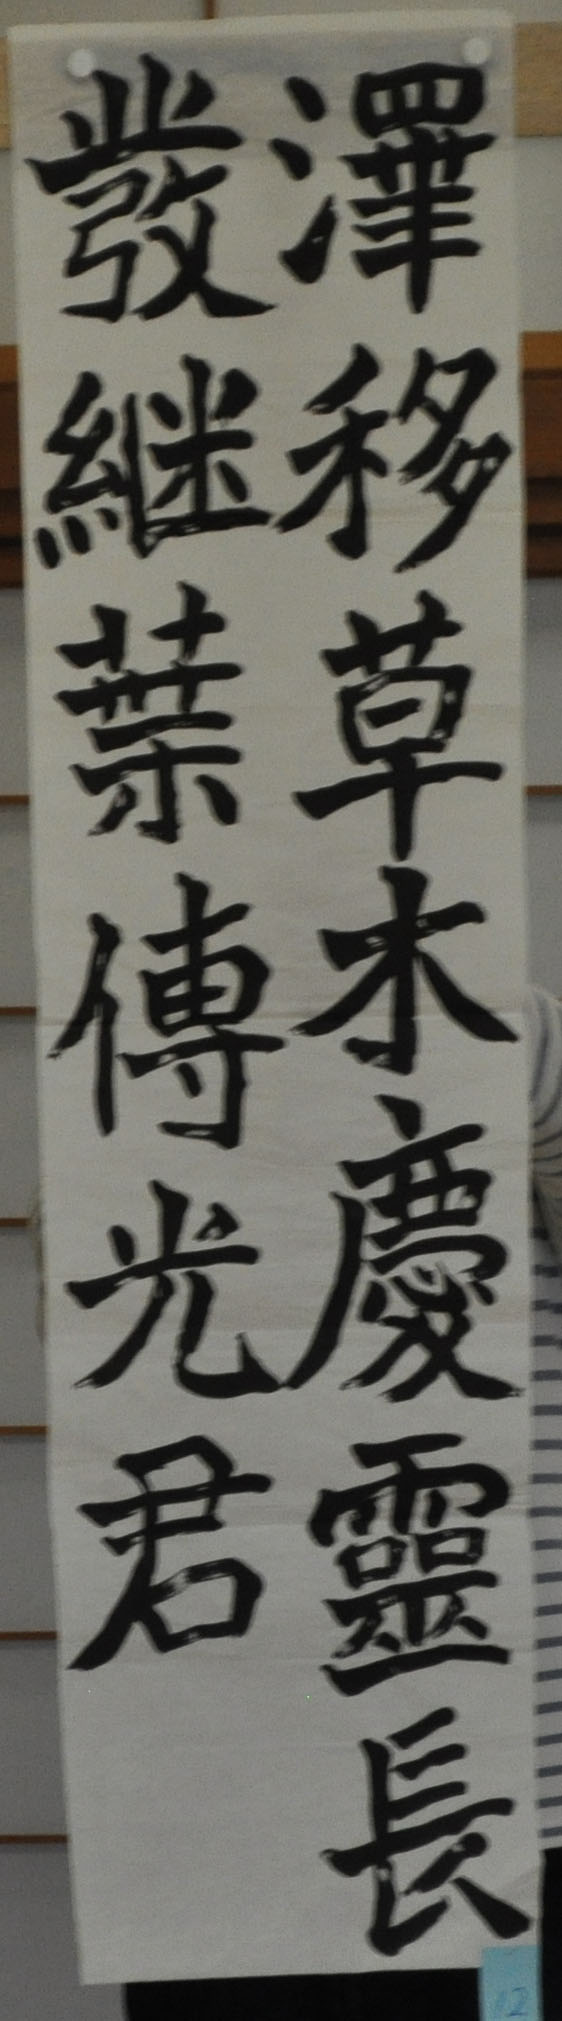 澤移草木慶靈長
發継葉傳光君
12